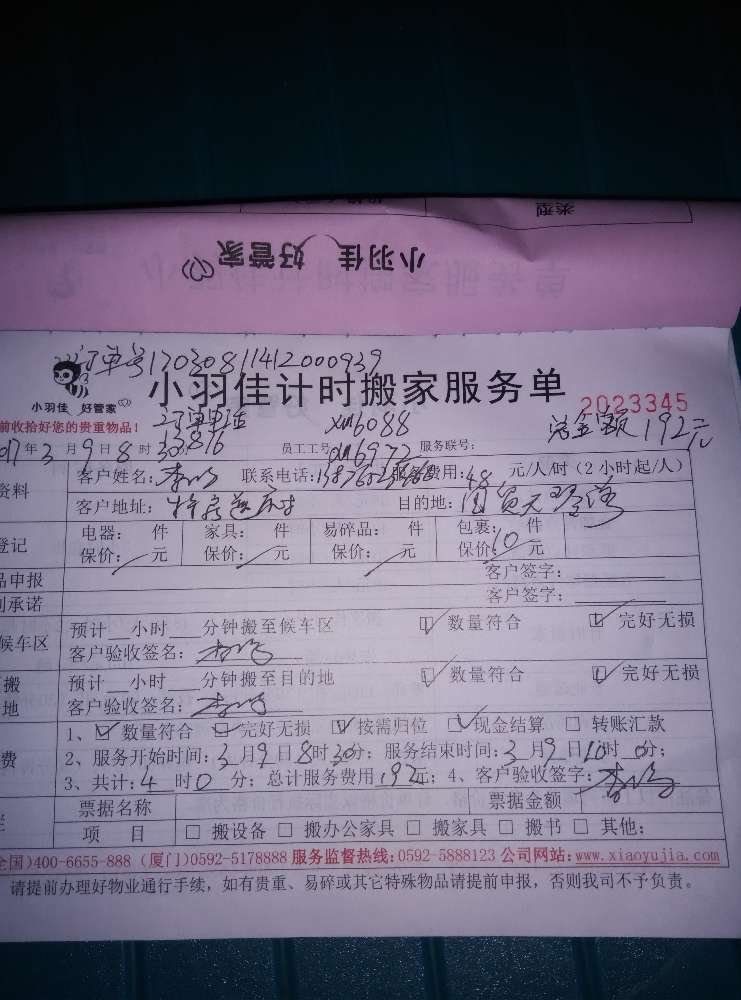 类型
小羽佳 好管家
订单号17030811412000939
小羽佳 好管家
小羽佳计时搬家服务单
2023345
前收拾好您的贵重物品！
xm6088
总金额192元
年3月9日8时 员工工号 xm6972 服务联号：
客户姓名： 联系电话： 服务费用：48 元/人/时（2小时起/人）
资料
客户地址： 目的地：
电器： 件 家具： 件 易碎品： 件 包裹：10 件
登记
保价： 元 保价： 元 保价： 元 保价： 元
品申报 客户签字：
承诺 客户签字：
候车区 预计 小时 分钟搬至候车区 数量符合 完好无损
客户验收签名：
搬 预计 小时 分钟搬至目的地 数量符合 完好无损
地 客户验收签名：
1、 数量符合 完好无损 按需归位 现金结算 转账汇款
费 2、服务开始时间：3月9日8时30分；服务结束时间：3月9日10时0分；
3、共计：4时0分；总计服务费用192元；4、客户验收签字：
票据名称 票据金额
项 目 搬设备 搬办公家具 搬家具 搬书 其他：
全国）400-6655-888（厦门）0592-5178888 服务监督热线：0592-5888123 公司网站：www.xiaoyujia.com
请提前办理好物业通行手续，如有贵重、易碎或其它特殊物品请提前申报，否则我司不予负责。